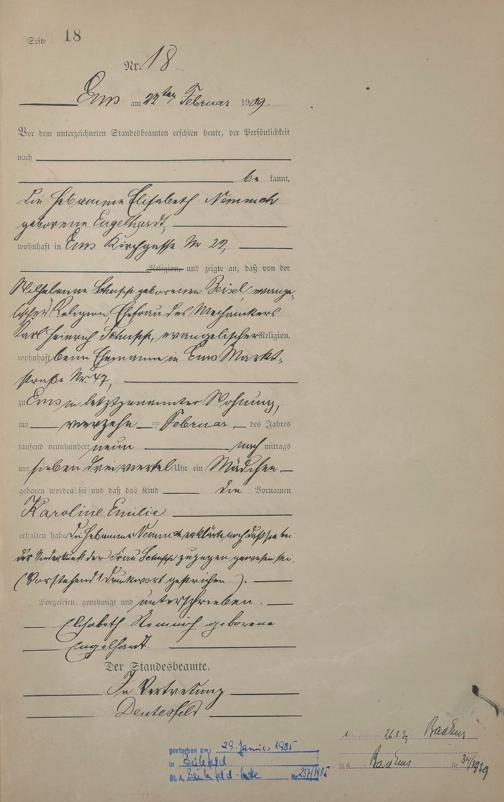 Seite 18
Nr. 18
Ems am 22ten Februar 1909.
Vor dem unterzeichneten Standesbeamten erschien heute, der Persönlichkeit
nach
be kannt,
die Hebamme Elisabeth
geborene Engelhardt,
wohnhaft in Ems Kirchgasse Nr 22,
Religion, und zeigte an, daß von der
Wilhelmine geborenen Beisel, evange-
lischer Religion, Ehefrau des Mechanikers
Karl Heinrich evangelischer Religion,
wohnhaft beim Ehemanne in Ems Markt-
straße Nr 47,
zu Ems in letztgenannter Wohnung,
am vierzehn ten Februar des Jahres
tausend neunhundert neun nach mittags
um sieben dreiviertel Uhr ein Mädchen
geboren worden sei und daß das Kind die Vornamen
Karoline Emilie
erhalten habe. Die Hebamme erklärte noch daß sie bei
der Niederkunft der Frau zugegen gewesen sei.
(Vorstehend 1 Druckwort gestrichen).
Vorgelesen, genehmigt und unterschrieben.
Elisabeth geborene
Engelhardt
Der Standesbeamte.
In Vertretung
gestorben am 29. Januar 1985
in Bielefeld
St. A. Bielefeld Nr.
1
St. A. Nr.